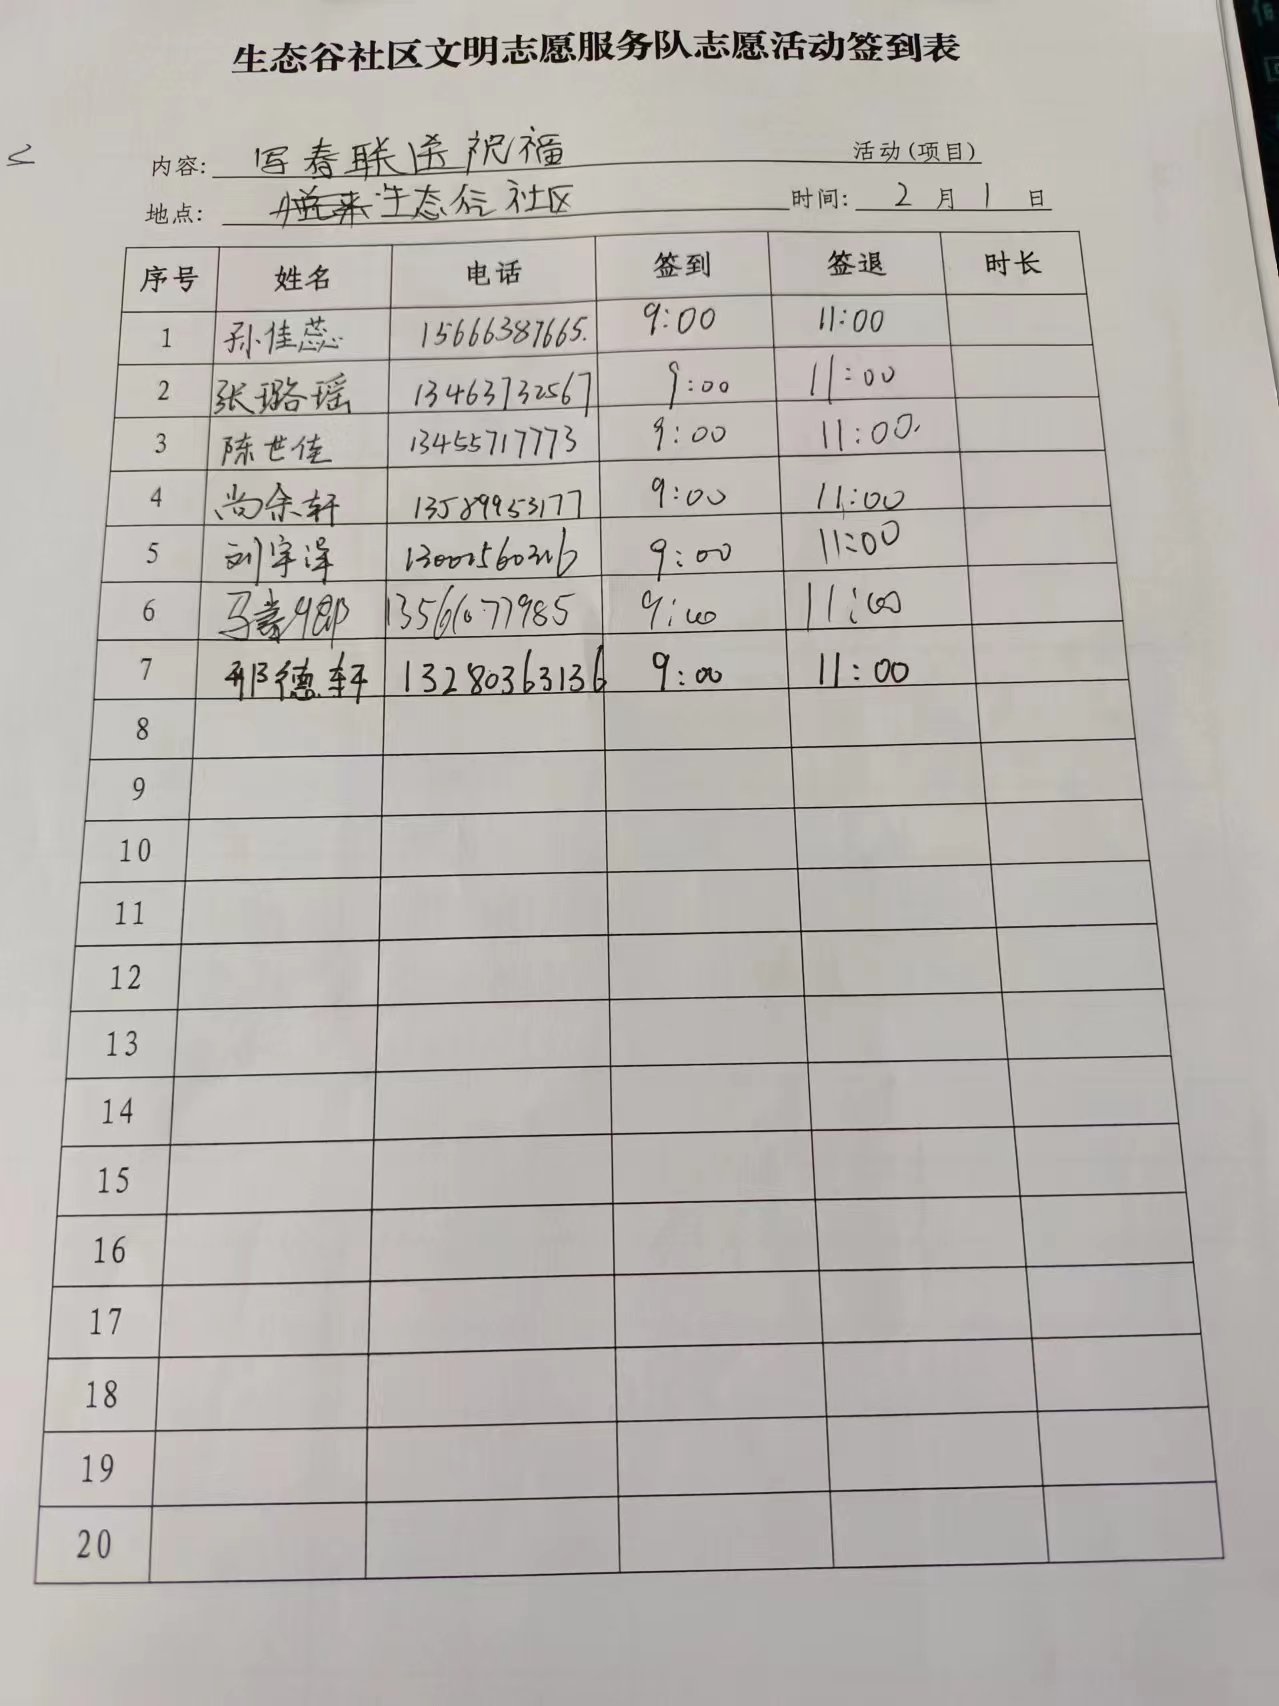 生态谷社区文明志愿服务队志愿活动签到表
内容: 写春联送祝福 活动(项目)
地点: 生态谷社区 时间: 2 月 1 日
序号 姓名 电话 签到 签退 时长
1 孙佳蕊 15666387665. 9:00 11:00
2 张璐瑶 13463732567 9:00 11:00
3 陈世佳 13455717773 9:00 11:00.
4 尚余轩 13589953177 9:00 11:00
5 刘宇泽 9:00 11:00
6 9:00 11:00
7 邢德轩 13280363136 9:00 11:00
8
9
10
11
12
13
14
15
16
17
18
19
20